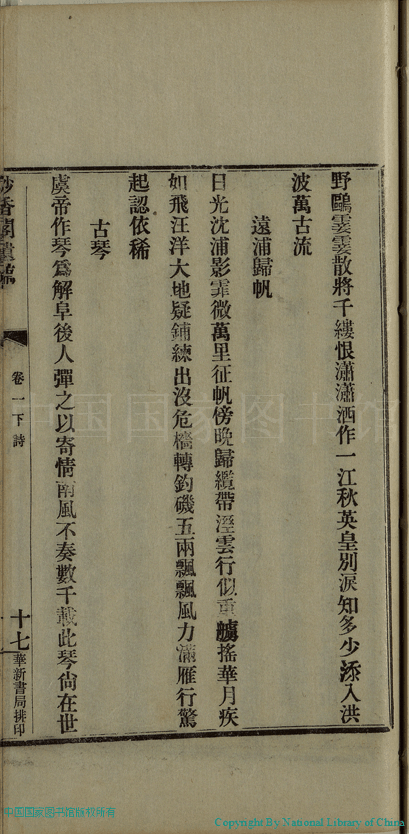 野鷗雲雲散將千縷恨瀟瀟洒作一江秋英皇別淚知多少添入洪
波萬古流
遠浦歸帆
日光沈浦影霏微萬里征帆傍晚歸纜帶溼雲行似重艫搖華月疾
如飛汪洋大地疑鋪練出沒危檣轉釣磯五兩飄飄風力滿雁行驚
起認依稀
古琴
虞帝作琴爲解阜後人彈之以寄情南風不奏數千載此琴尙在世
妙香閣遺稿
卷一下 詩
十七
華新書局排印
中国国家图书馆
中国国家图书馆版权所有
Copyright By National Library of China